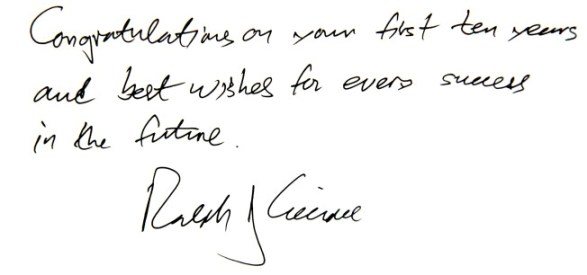 Congratulations on your first ten years
and best wishes for every success
in the future.
Ralph J